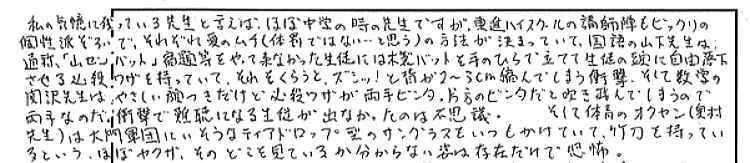 私の気憶に残っている先生と言えば、ほぼ中学の時の先生ですが、東進ハイスクールの講師陣もビックリの
個性派ぞろいで、それぞれ愛のムチ(体罰ではない…と思う)の方法が決まっていて、国語の山下先生は、
通称、「山センバット」宿題等をやって来なかった生徒には木製バットを手のひらで立てて生徒の頭に自由落下
させる必殺ワザを持っていて、それをくらうと、ズンッ!と背が2〜3cm縮んでしまう衝撃。そして数学の
関沢先生は、やさしい顔つきだけど必殺ワザが両手ビンタ。片方のビンタだと吹き飛んでしまうので
両手なのだ。衝撃で難聴になる生徒が出なかったのは不思議。そして体育のオクセン(奥村
先生)は大門軍団にいそうなティアドロップ型のサングラスをいつもかけていて、竹刀を持ってい
るという、ほぼヤクザ。そのどこを見ているか分からない姿は存在だけで恐怖。